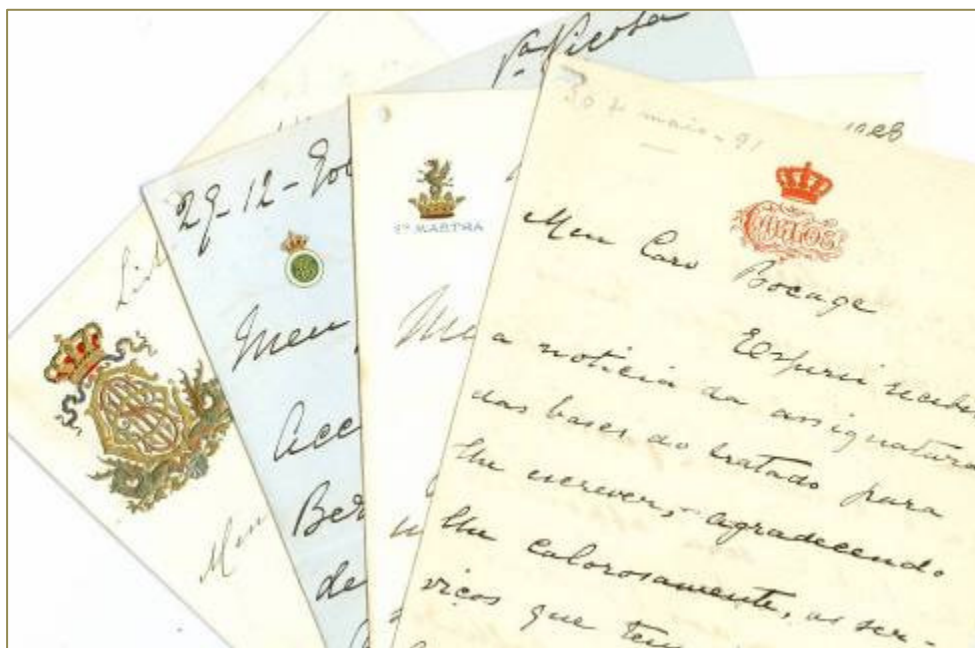 Lis
Min
Vª Viçosa
29-12-900
Meu
Acce
Ber
de
1928
Sª MARTHA
Me
30 de maio - 91
CARLOS
Meu Caro Bocage
Esperei recebe
a noticia da assignatura
das bases do tratado para
lhe escrever, agradecendo
lhe calorosamente, os ser-
viços que tem